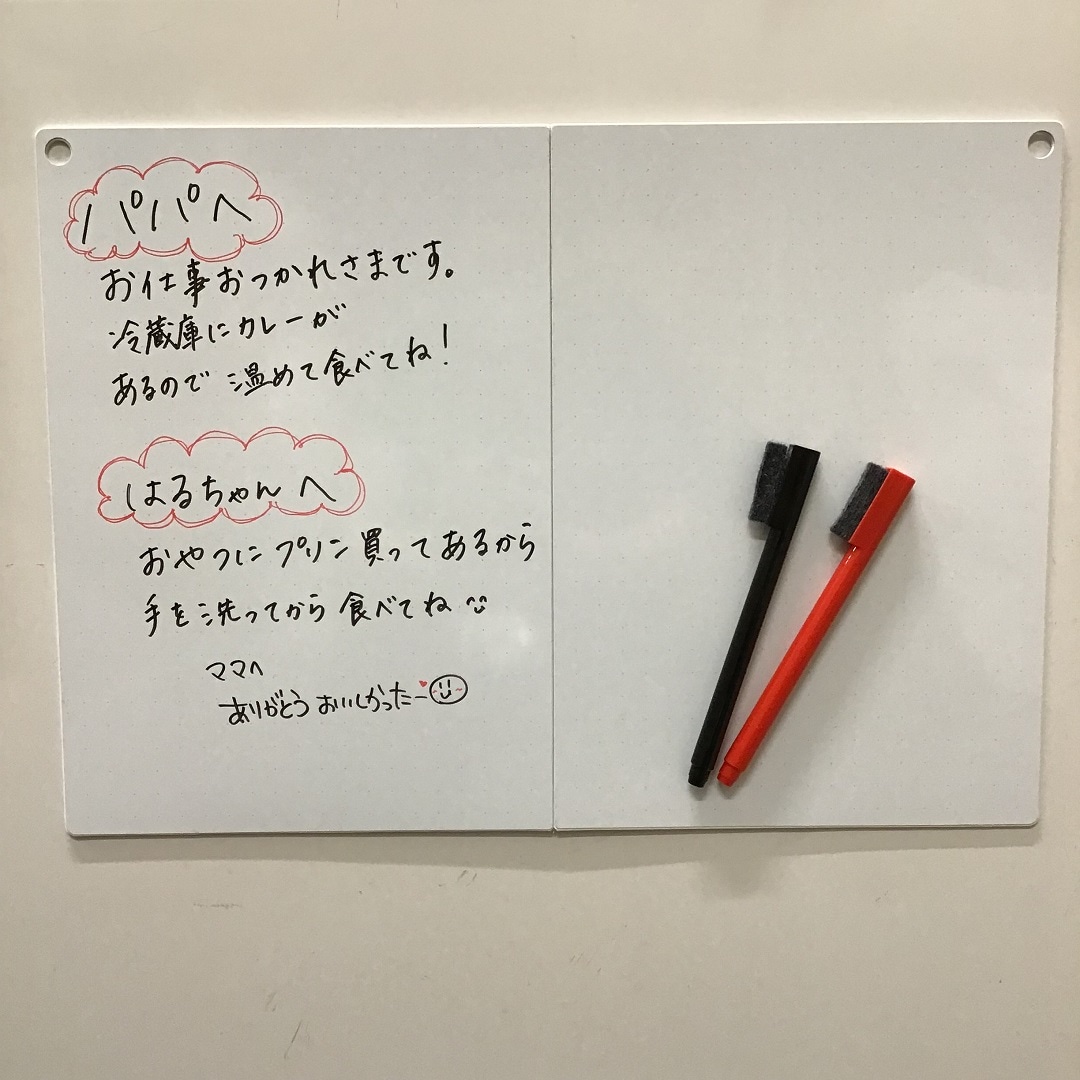 パパへ
お仕事おつかれさまです。
冷蔵庫にカレーが
あるので温めて食べてね！
はるちゃんへ
おやつにプリン買ってあるから
手を洗ってから食べてね
ママへ
ありがとうおいしかったー